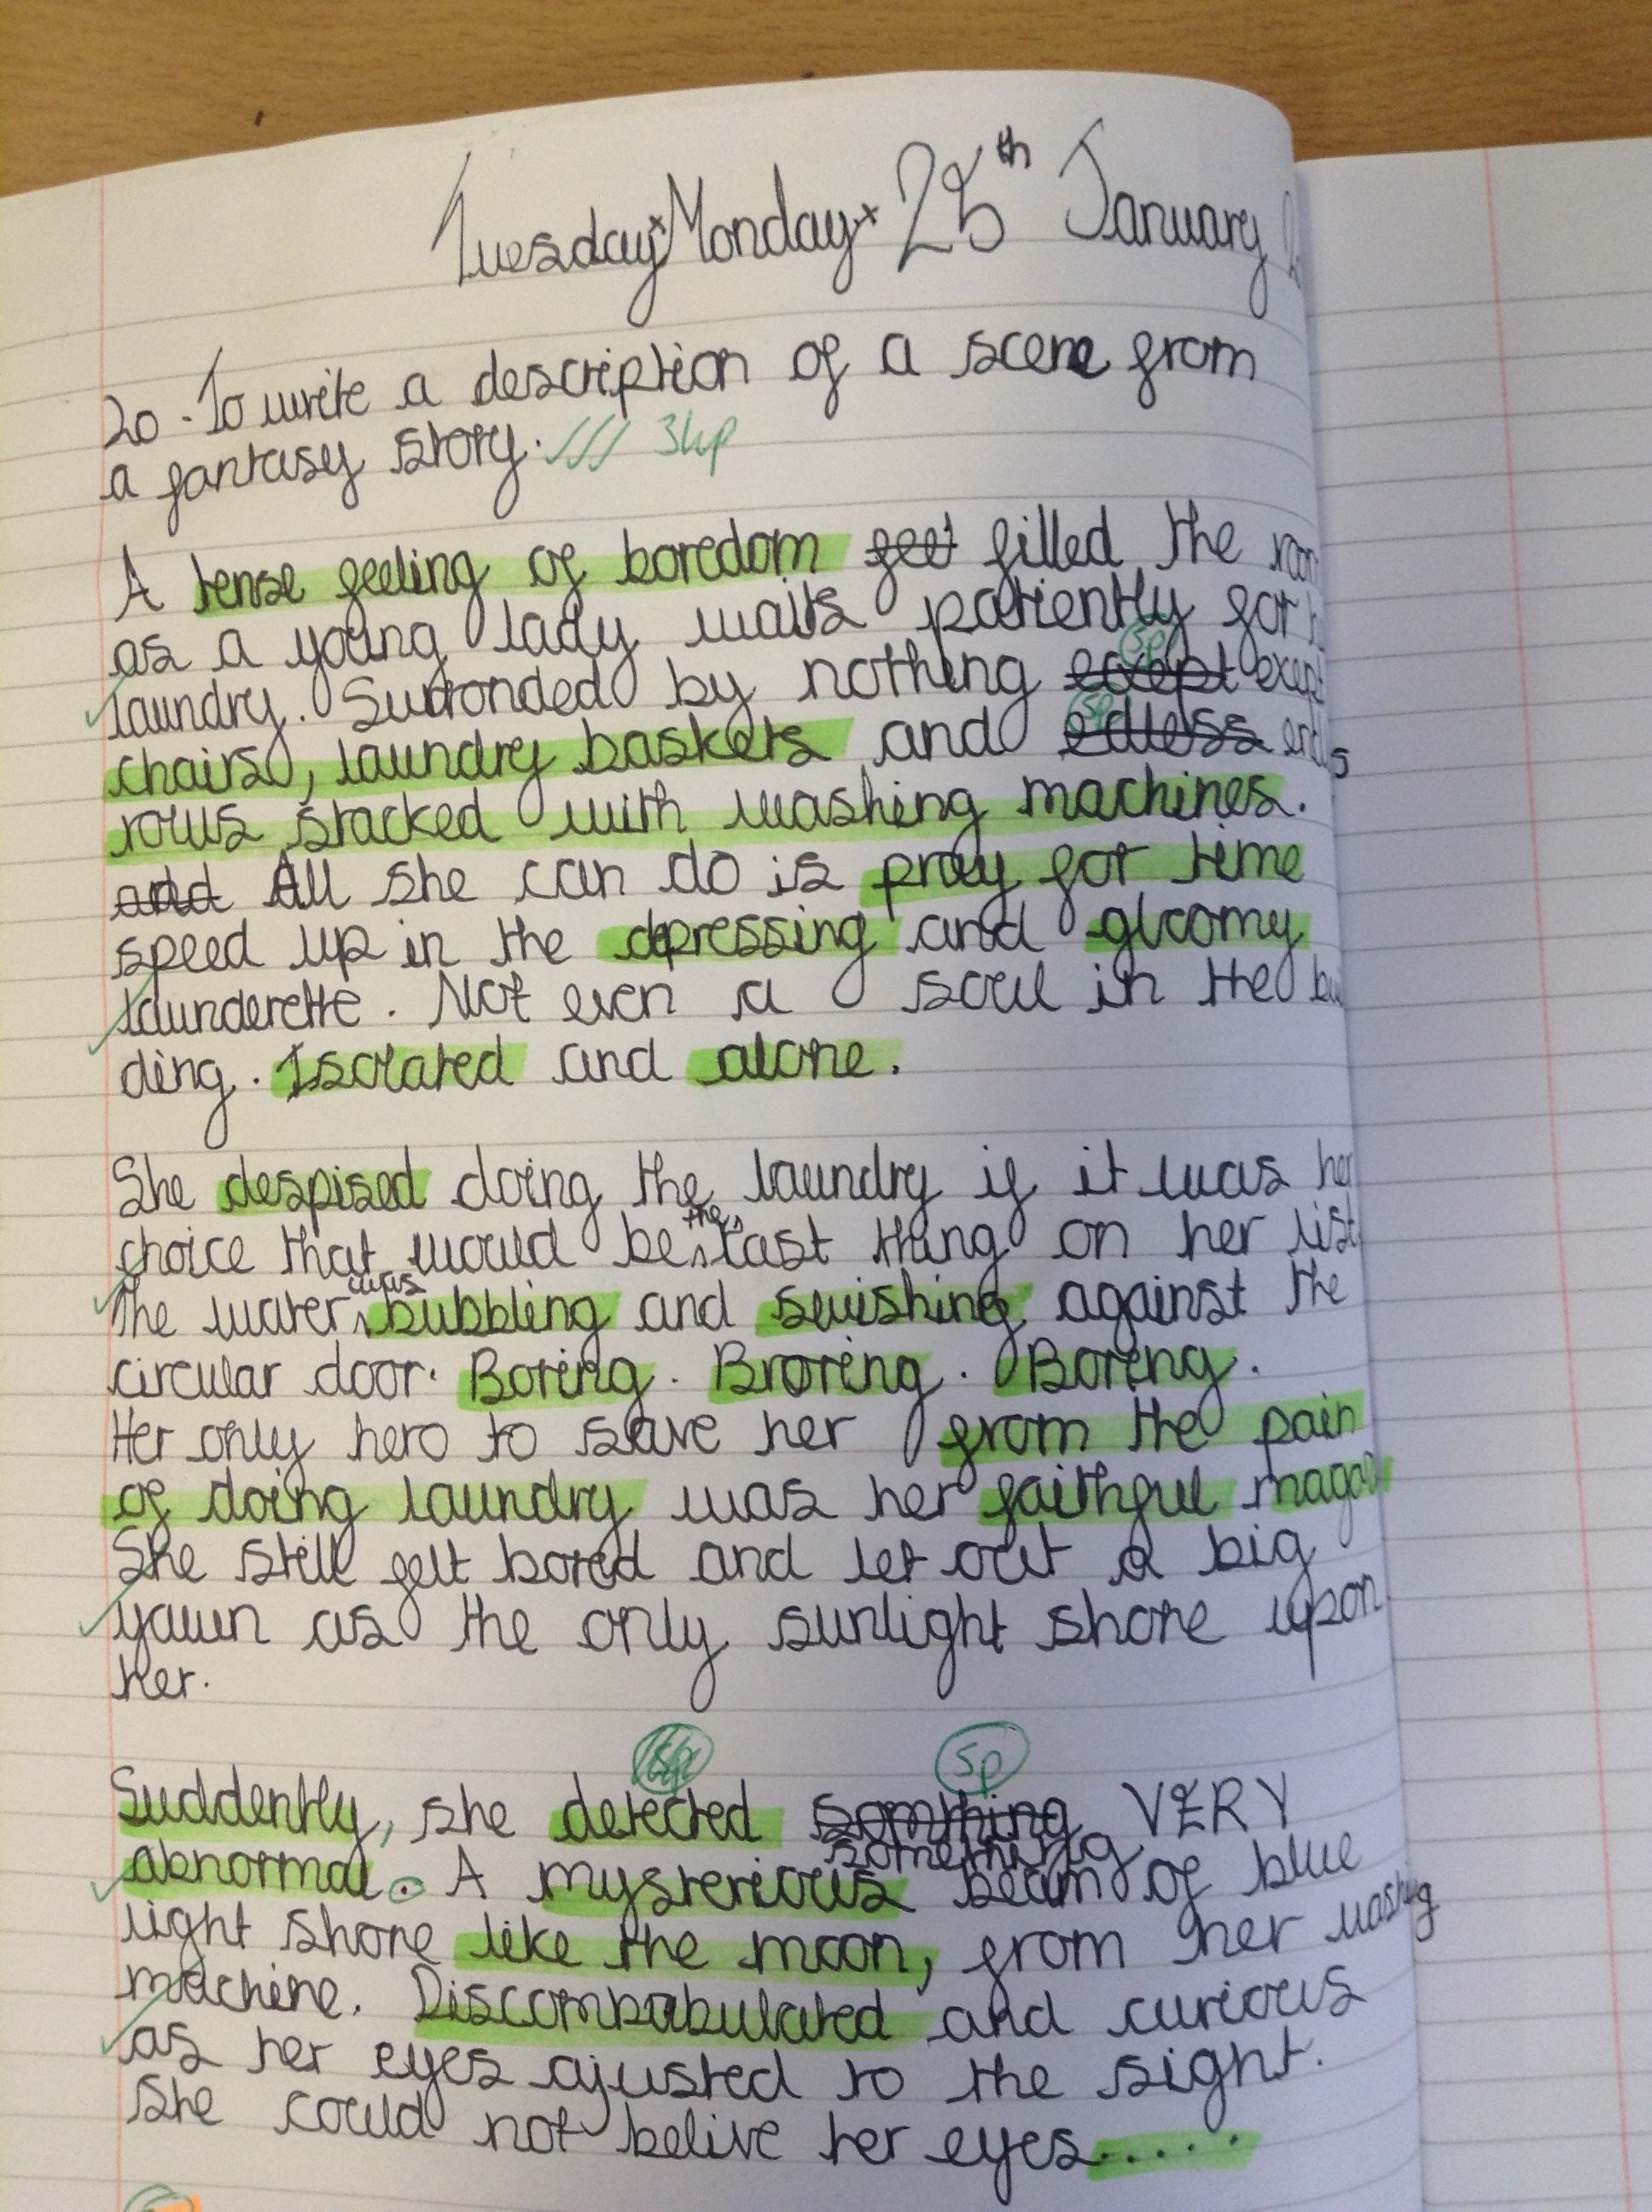 Tuesday Monday 25th January
Lo - To write a description of a scene from
a fantasy story. 3hp
A tense feeling of boredom feet filled the
as a young lady waits patiently for
sp
laundry. Surronded by nothing exept
sp
chairs, laundry baskets and edless
rows stacked with washing machines.
and All she can do is pray for time
speed up in the depressing and gloomy
launderette. Not even a soul in the
ding. Isolated and alone.
She despised doing the laundry if it was her
choice that would be the last thing on her list
The water was bubbling and swishing against the
circular door. Boring. Broring. Boring.
Her only hero to save her from the pain
of doing laundry was her faithful
She still felt bored and let out a big
yawn as the only sunlight shone upon
her.
sp sp
Suddently, she detected somthing VERY
something
abnormal. A mysterious beam of blue
light shone like the moon, from her washing
machine. Discombabulated and curious
as her eyes ajusted to the sight.
She could not belive her eyes.....